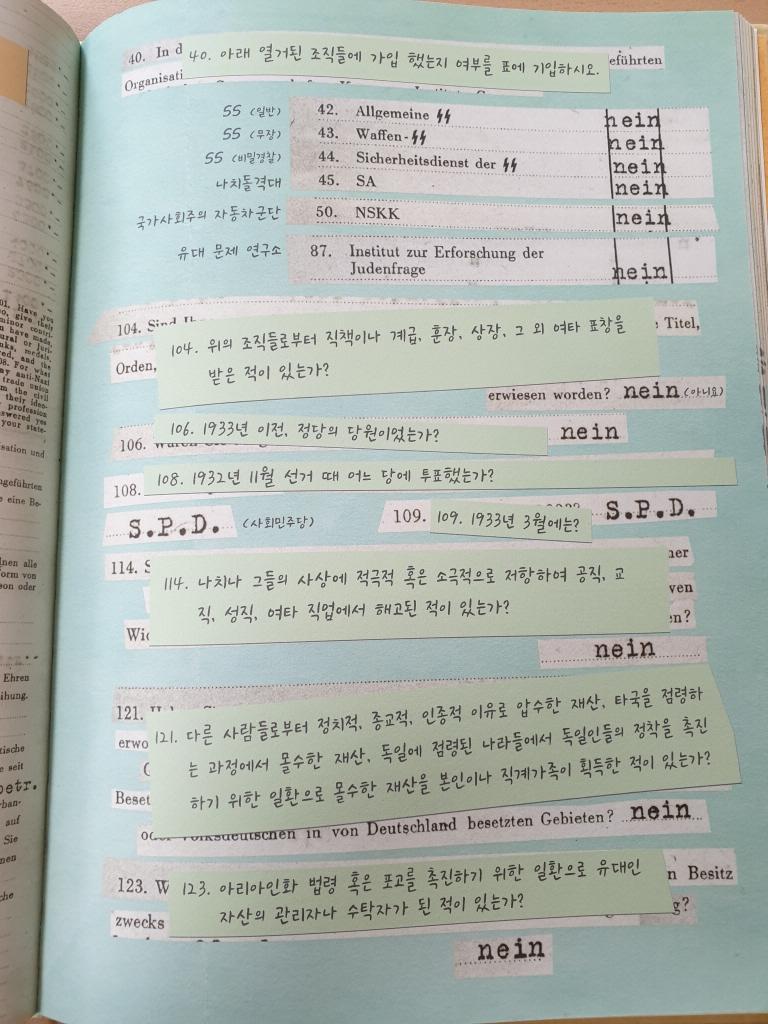 40. In d
40. 아래 열거된 조직들에 가입 했는지 여부를 표에 기입하시오.
eführten
Organisati
SS (일반) 42. Allgemeine SS nein
SS (무장) 43. Waffen-SS nein
SS (비밀경찰) 44. Sicherheitsdienst der SS nein
나치돌격대 45. SA nein
국가사회주의 자동차군단 50. NSKK nein
유대 문제 연구소 87. Institut zur Erforschung der
Judenfrage nein
104. Sind
Titel,
104. 위의 조직들로부터 직책이나 계급, 훈장, 상장, 그 외 여타 표창을
받은 적이 있는가?
Orden,
erwiesen worden? nein (아니요)
106. 1933년 이전, 정당의 당원이었는가?
106. nein
108. 108. 1932년 11월 선거 때 어느 당에 투표했는가?
S.P.D. (사회민주당) 109. 109. 1933년 3월에는? S.P.D.
114. S
114. 나치나 그들의 사상에 적극적 혹은 소극적으로 저항하여 공직, 교
직, 성직, 여타 직업에서 해고된 적이 있는가?
ner
ven
n?
Wid
nein
121.
121. 다른 사람들로부터 정치적, 종교적, 인종적 이유로 압수한 재산, 타국을 점령하
는 과정에서 몰수한 재산, 독일에 점령된 나라들에서 독일인들의 정착을 촉진
하기 위한 일환으로 몰수한 재산을 본인이나 직계가족이 획득한 적이 있는가?
erwo
Beset
oder Volksdeutschen in von Deutschland besetzten Gebieten? nein
123. W
123. 아리아인화 법령 혹은 포고를 촉진하기 위한 일환으로 유대인
자산의 관리자나 수탁자가 된 적이 있는가?
n Besitz
zwecks
g?
nein